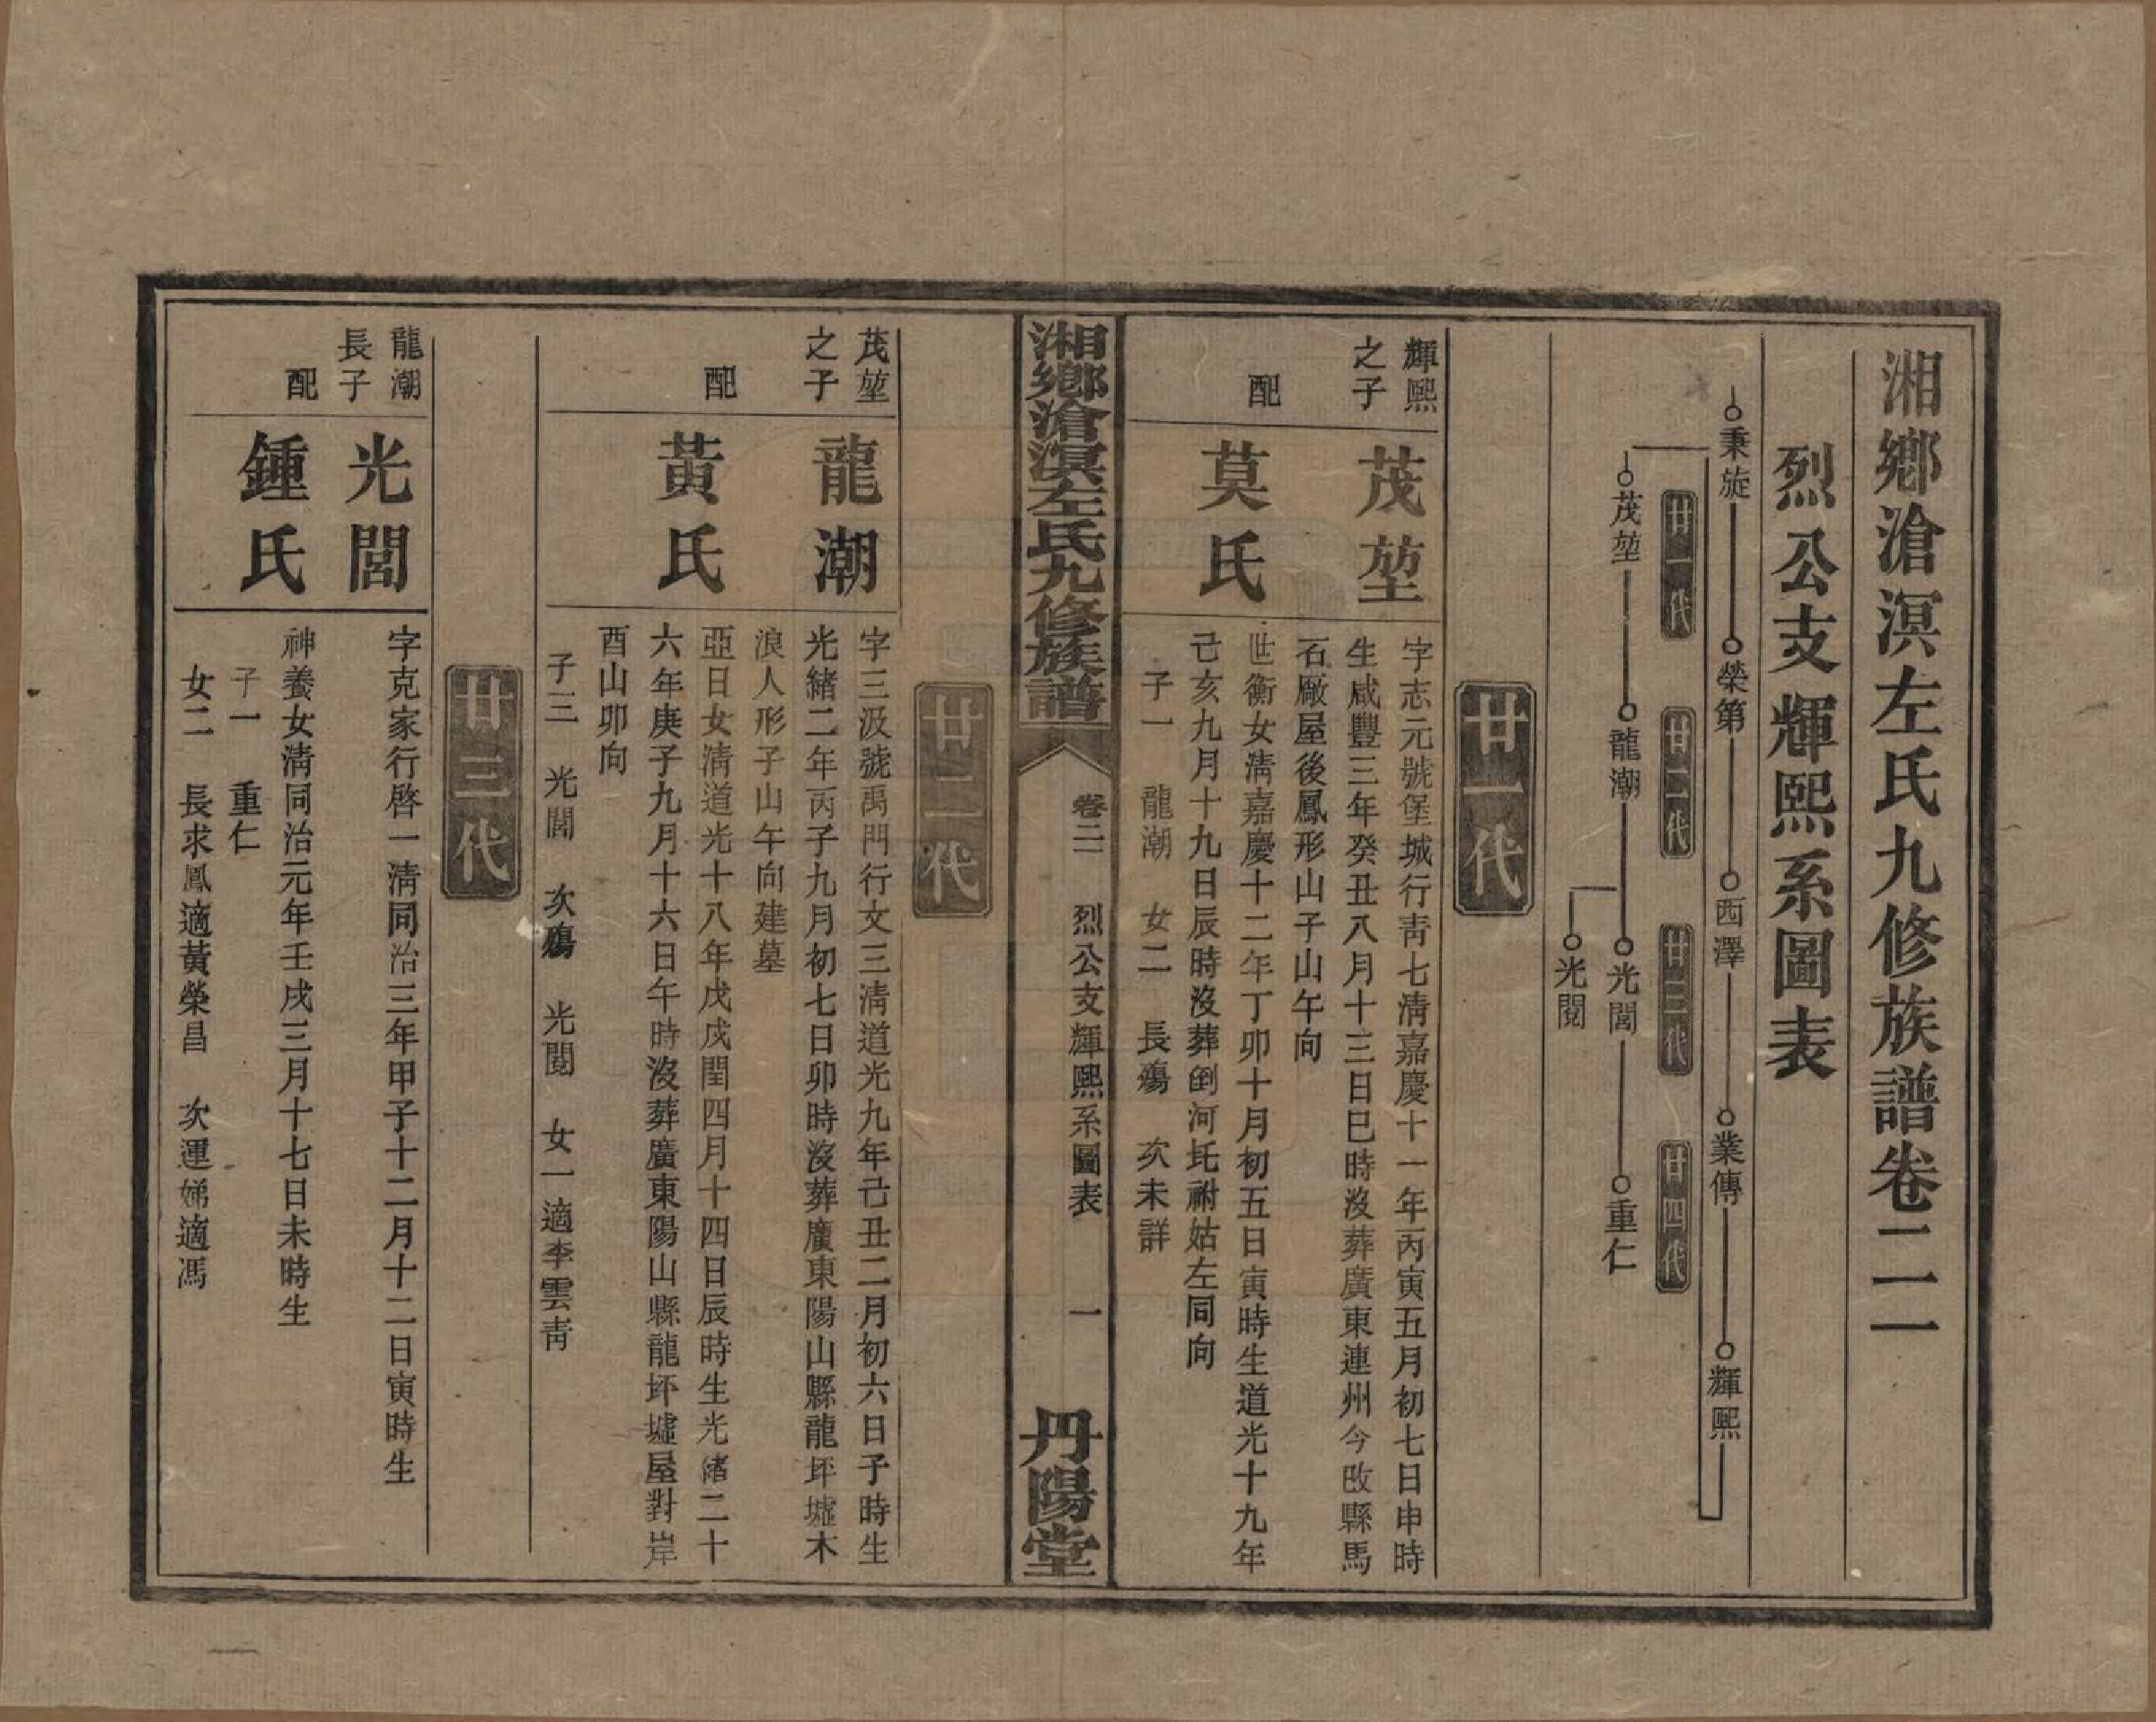 湘鄉滄溟左氏九修族譜卷二一
烈公支輝熙系圖表
秉旋 榮第 西澤 業傳 輝熙
廿一代 廿二代 廿三代 廿四代
茂堃 龍潮 光閭 重仁
光閱
廿一代
輝熙
之子
茂堃
字志元號堡城行靑七淸嘉慶十一年丙寅五月初七日申時
生咸豐三年癸丑八月十三日巳時沒葬廣東連州今改縣馬
石廠屋後鳳形山子山午向
配
莫氏
世衡女淸嘉慶十二年丁卯十月初五日寅時生道光十九年
己亥九月十九日辰時沒葬到河圫祔姑左同向
子一 龍潮 女二 長殤 次未詳
湘鄉滄溟左氏九修族譜
卷二一 烈公支輝熙系圖表 一
丹陽堂
廿二代
茂堃
之子
龍潮
字三汲號禹門行文三淸道光九年己丑二月初六日子時生
光緒二年丙子九月初七日卯時沒葬廣東陽山縣龍坪墟木
浪人形子山午向建墓
配
黃氏
亞日女淸道光十八年戊戌閏四月十四日辰時生光緒二十
六年庚子九月十六日午時沒葬廣東陽山縣龍坪墟屋對岸
酉山卯向
子三 光閭 次殤 光閱 女一適李雲靑
廿三代
龍潮
長子
光閭
字克家行啓一淸同治三年甲子十二月十二日寅時生
配
鍾氏
神養女淸同治元年壬戌三月十七日未時生
子一 重仁
女二 長求鳳適黃榮昌 次運娣適馮